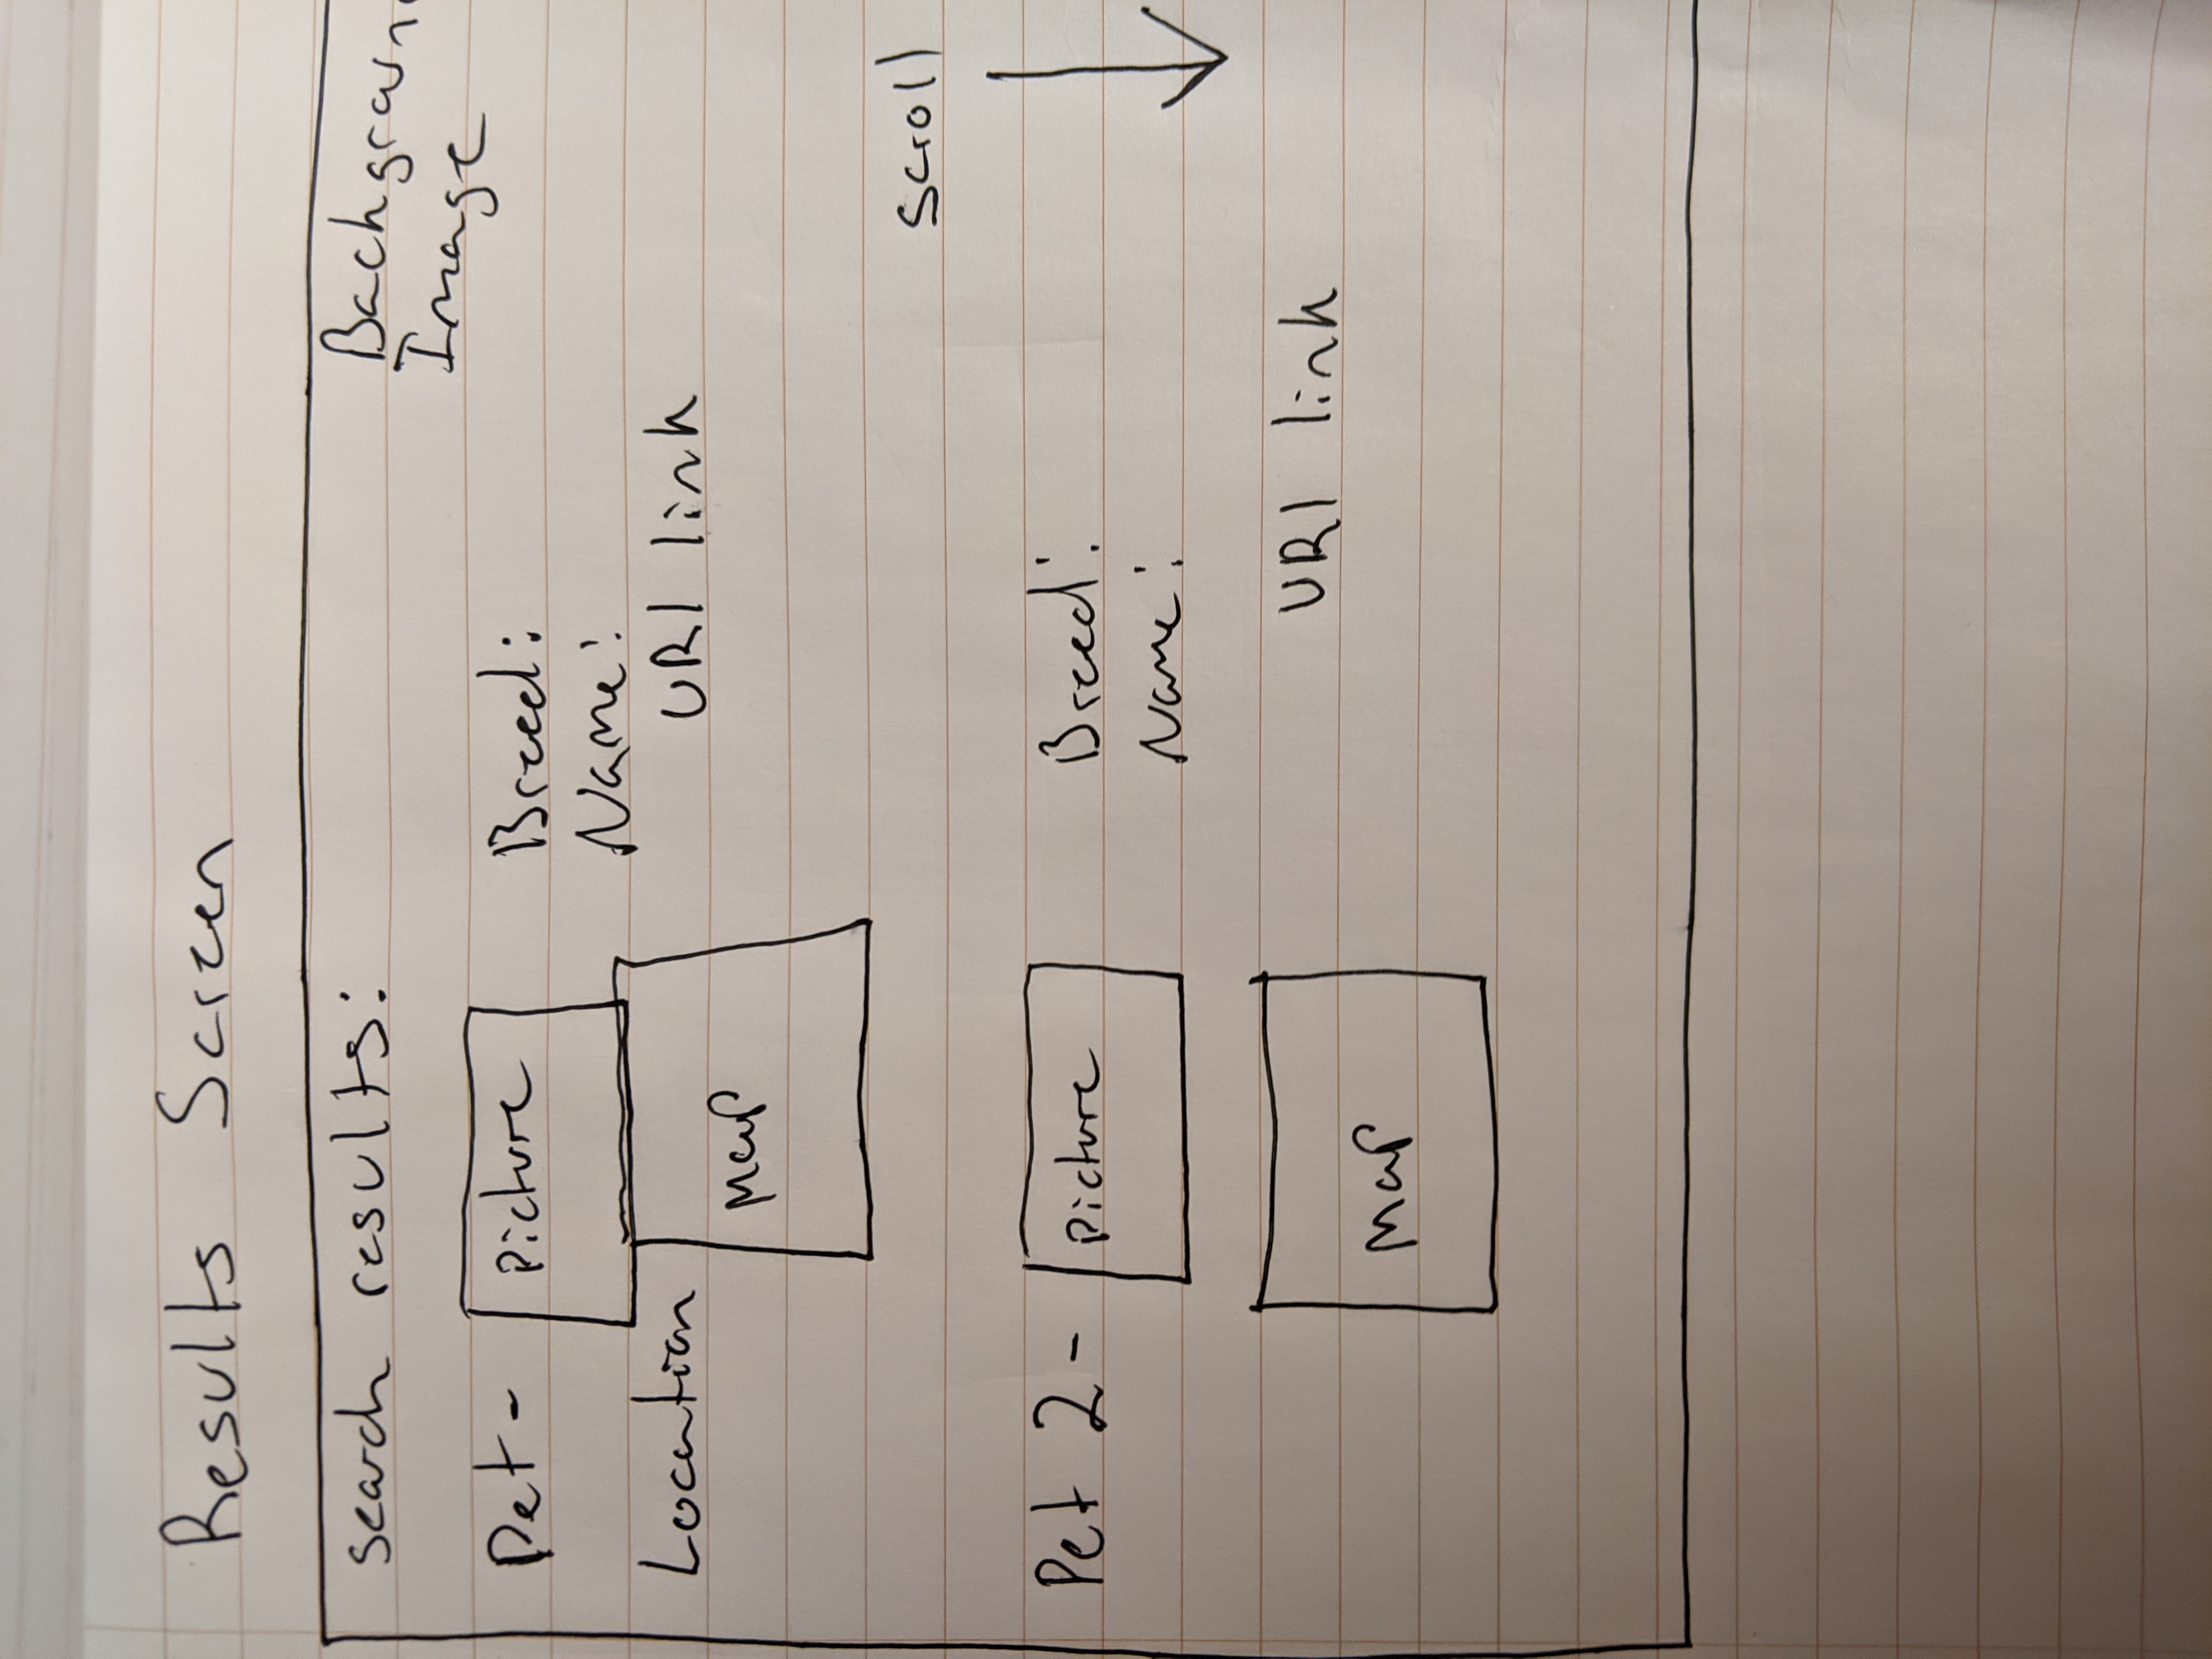 Results Screen
search results:
Background
Image
Pet-
Picture
Breed:
Name:
Location
Map
URI link
scroll
Pet 2-
Picture
Breed:
Name:
Map
URI link